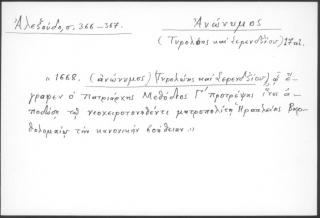 Ἀλεξούδη, σ. 366-367.
Ἀνώνυμος
(Τυρολόης καὶ Σερεντζίου) 17 αἰ.
"1668. (ἀνώνυμος) (Τυρολόης καὶ Σερεντζίου), ᾧ ἔ-
γραφεν ὁ Πατριάρχης Μεθόδιος Γ' προτρέψας ἵνα ἀ-
ποδώσῃ τῷ νεοχειροτονηθέντι μητροπολίτῃ Ἡρακλείας Βαρ-
θολομαίῳ τὴν κανονικὴν βοήθειαν."